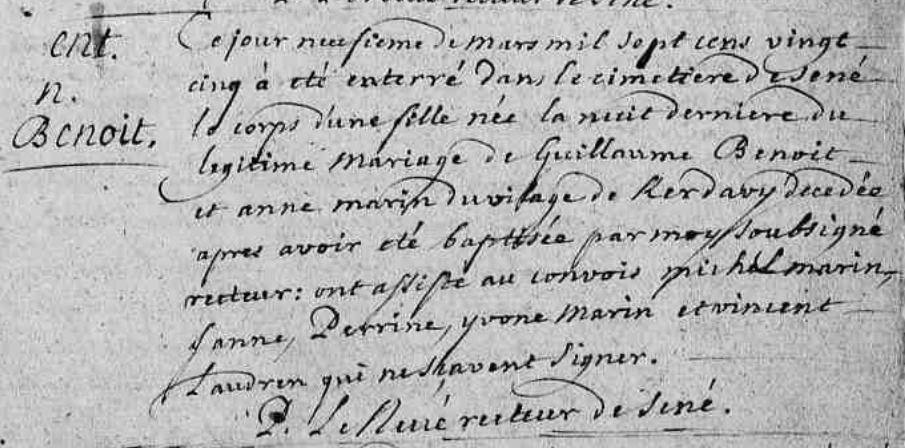 ent.
n.
Benoit.
Ce jour neufieme de mars mil sept cens vingt
cinq à eté enterré dans le cimetiere de Sené
le corps d'une fille née la nuit derniere du
legitime mariage de Guillaume Benoit
et anne marin du vilage de Kerdavy decedée
apres avoir eté baptisée par moy soubsigné
recteur: ont assisté au convois michel marin,
janne, Perrine, yvone Marin et vincent
Laudren qui ne sçavent signer.
P. Le recteur de Sené.